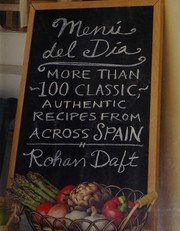 Menú
del Día
MORE THAN
100 CLASSIC,
AUTHENTIC
RECIPES FROM
ACROSS SPAIN
Rohan Daft